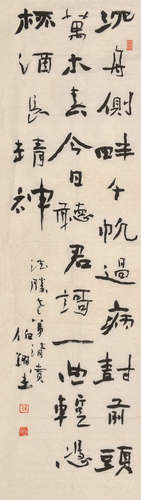 沉舟側畔千帆過病樹前頭
萬木春今日聽君謌一曲暫憑
杯酒長精神
法勝老弟清賞
伯翔書